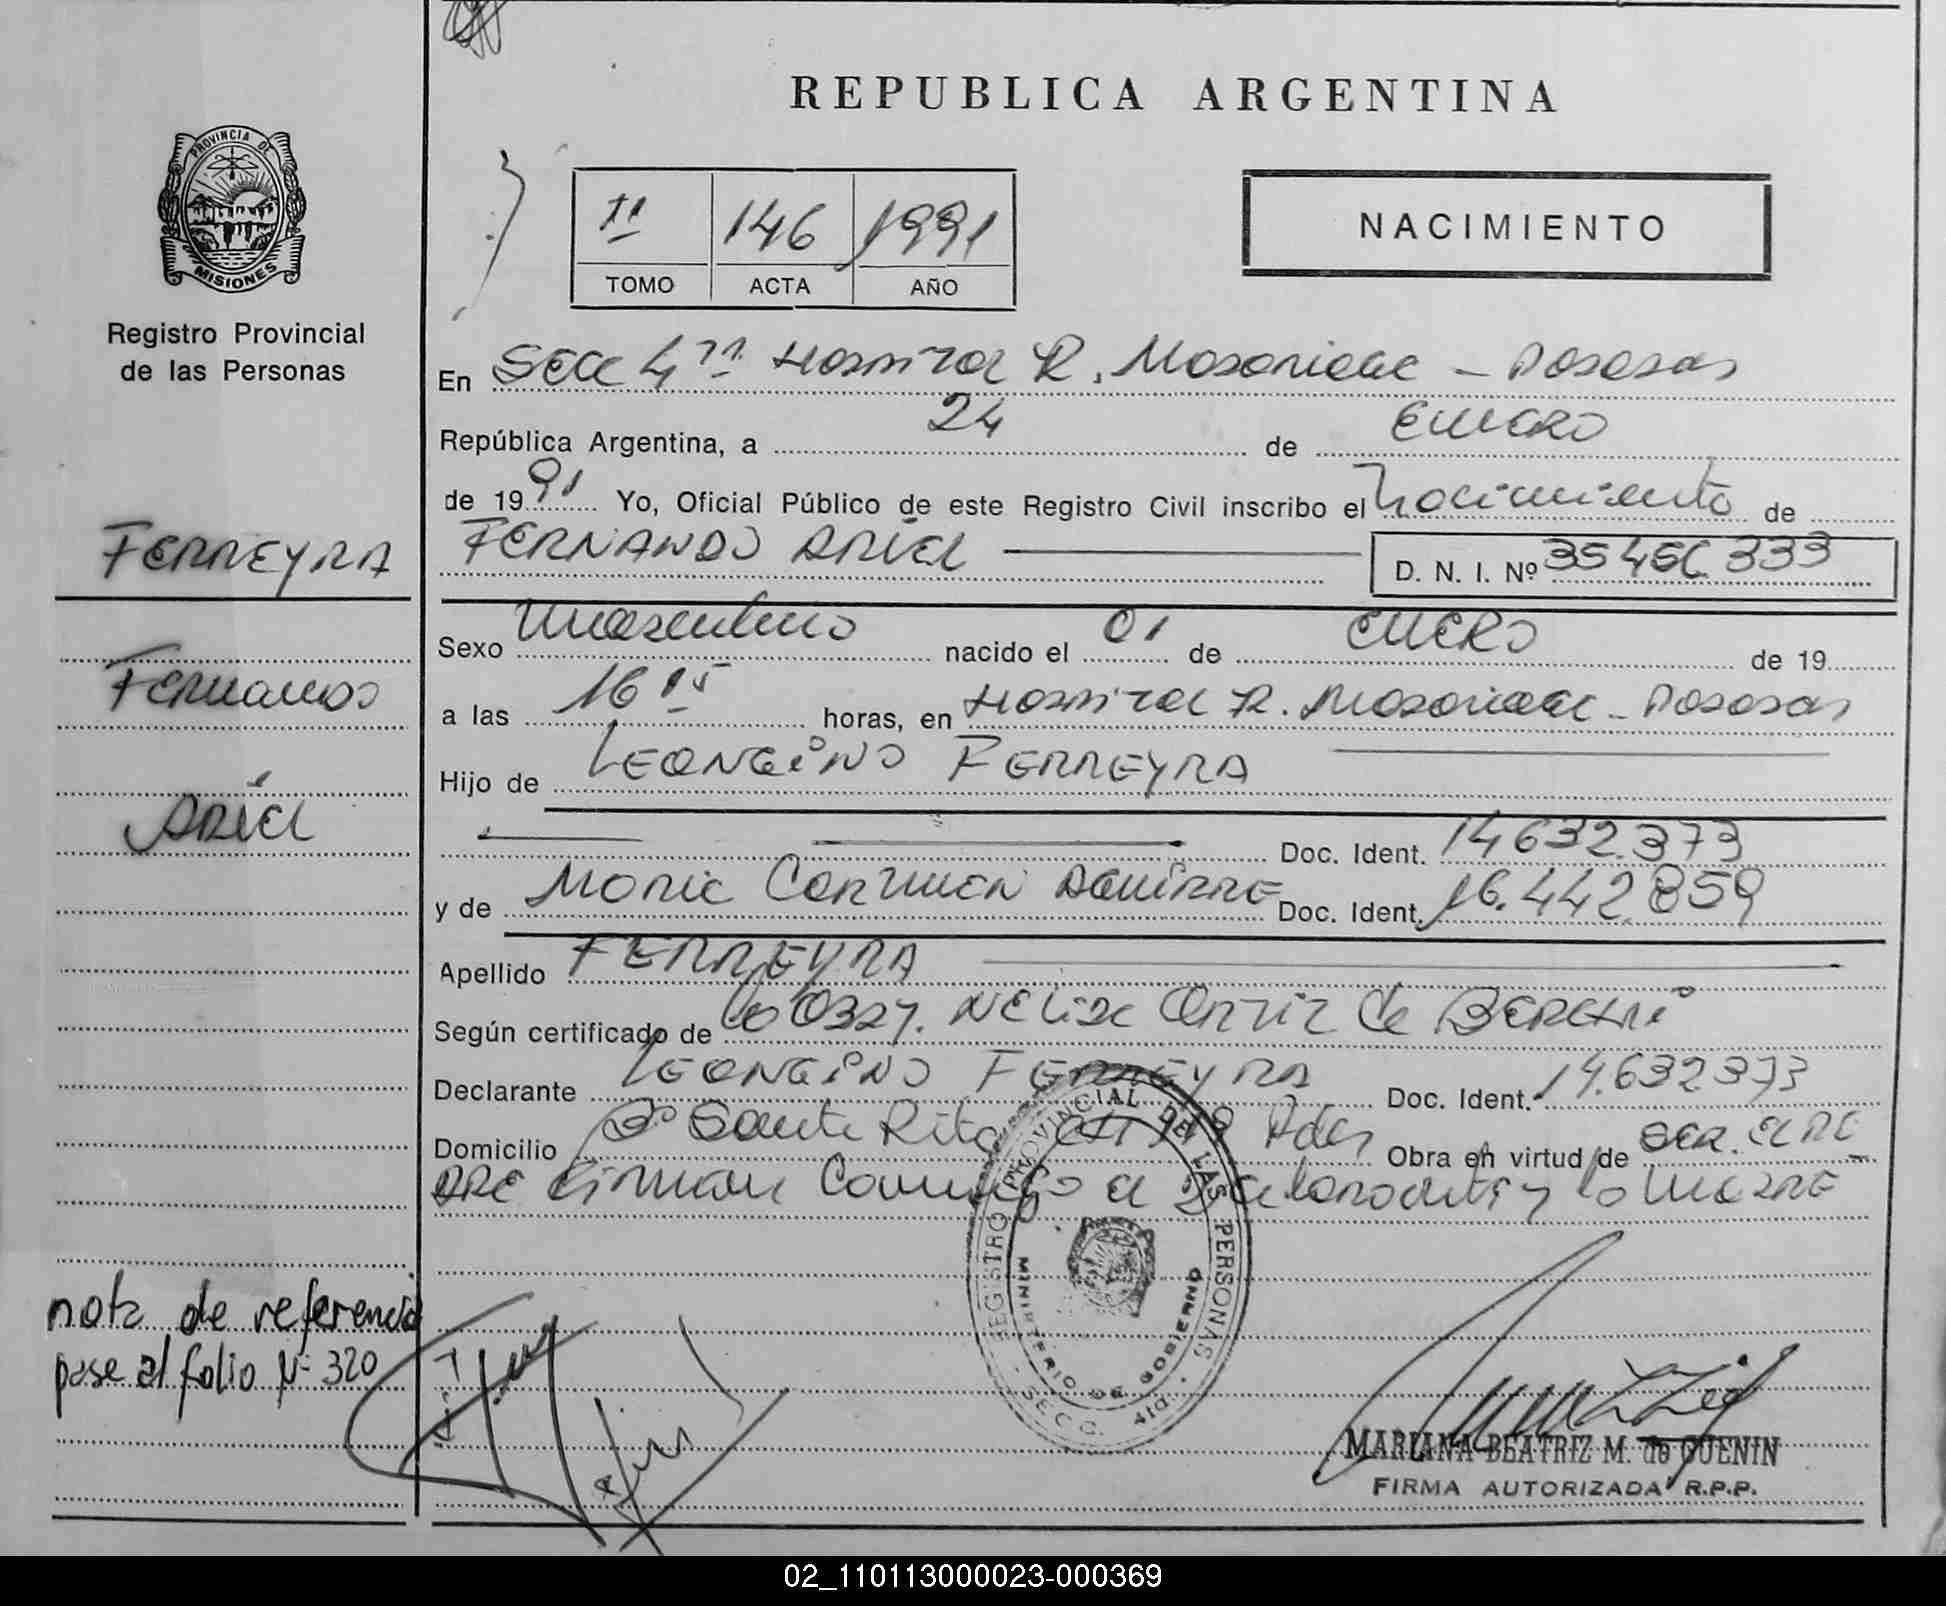 REPUBLICA ARGENTINA
PROVINCIA DE
MISIONES
Registro Provincial
de las Personas
1º 146 1991
TOMO ACTA AÑO
NACIMIENTO
En Secc 4ta Hospital R. Madariaga - Posadas
República Argentina, a 24 de ENERO
de 1991 Yo, Oficial Público de este Registro Civil inscribo el Nacimiento de
FERNANDO ARIEL D. N. I. Nº 35456333
FERREYRA
Fernando
ARIEL
Sexo Masculino nacido el 01 de ENERO de 19
a las 16 15 horas, en Hospital R. Madariaga - Posadas
Hijo de LEONGINO FERREYRA
Doc. Ident. 14632.373
y de Maria Carmen AGUIRRE Doc. Ident. 16.442.859
Apellido FERREYRA
Según certificado de la Obst. NELIDA Ortiz de
Declarante LEONGINO FERREYRA Doc. Ident. 14.632373
Domicilio Bº Santa Rita Pdas Obra en virtud de SER EL PA
DRE Firman Conmigo el Declarante y la MADRE
nota de referencia
pase al folio Nº 320
REGISTRO PROVINCIAL DE LAS PERSONAS
MINISTERIO DE GOBIERNO
MARIANA BEATRIZ M. de GUENIN
FIRMA AUTORIZADA R.P.P.
02_110113000023-000369